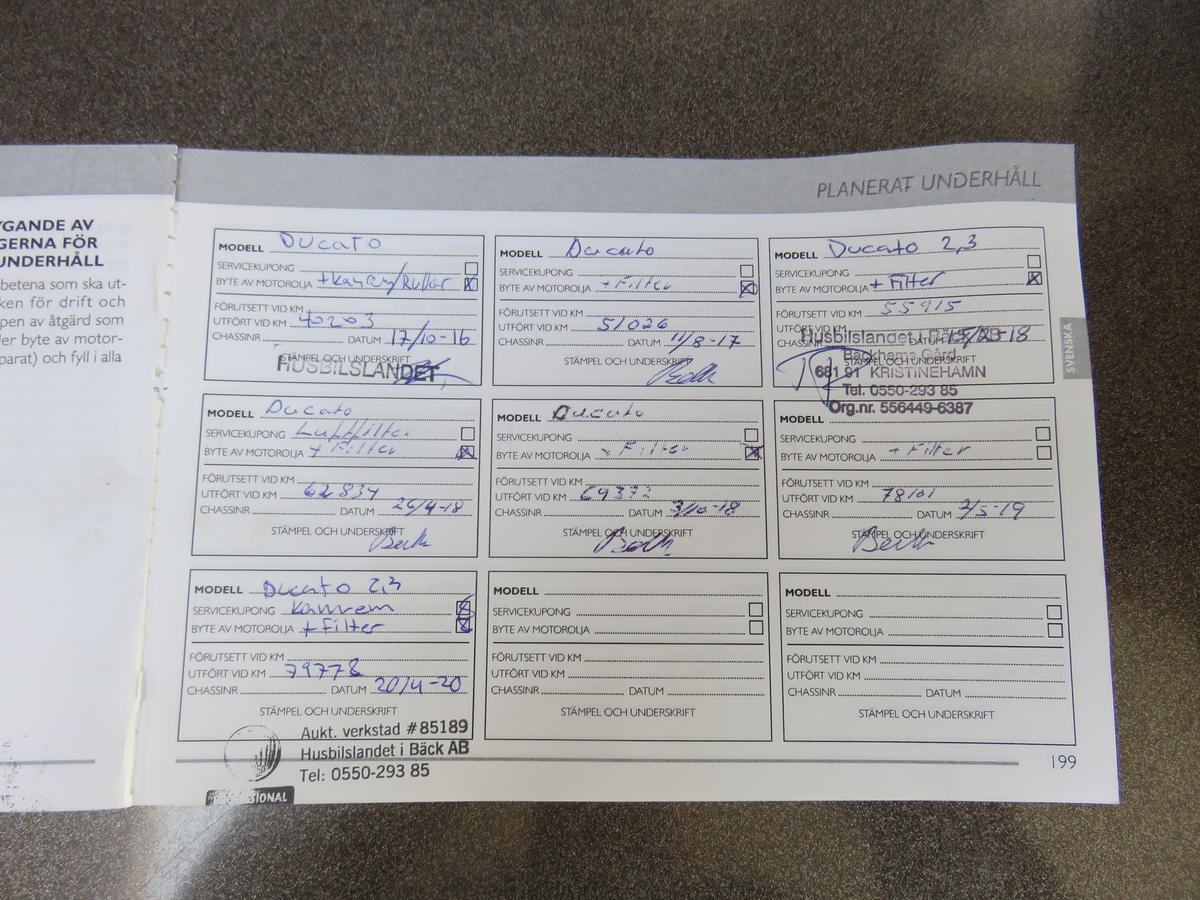 PLANERAT UNDERHÅLL
YGANDE AV
GERNA FÖR
UNDERHÅLL
betena som ska ut-
ken för drift och
pen av åtgärd som
ler byte av motor-
parat) och fyll i alla
MODELL Ducato
SERVICEKUPONG
BYTE AV MOTOROLJA
FÖRUTSETT VID KM
UTFÖRT VID KM 40203
CHASSINR DATUM 17/10-16
STÄMPEL OCH UNDERSKRIFT
HUSBILSLANDET
MODELL Ducato
SERVICEKUPONG
BYTE AV MOTOROLJA + Filter
FÖRUTSETT VID KM
UTFÖRT VID KM 51026
CHASSINR DATUM 11/8-17
STÄMPEL OCH UNDERSKRIFT
MODELL Ducato 2,3
SERVICEKUPONG
BYTE AV MOTOROLJA + Filter
FÖRUTSETT VID KM 55915
UTFÖRT VID KM
CHASSINR DATUM
STÄMPEL OCH UNDERSKRIFT
Husbilslandet i Bäck AB
Bäckhems Gård
681 91 KRISTINEHAMN
Tel. 0550-293 85
Org.nr. 556449-6387
MODELL Ducato
SERVICEKUPONG Luftfilter
BYTE AV MOTOROLJA + Filter
FÖRUTSETT VID KM
UTFÖRT VID KM 62834
CHASSINR DATUM 26/4-18
STÄMPEL OCH UNDERSKRIFT
MODELL Ducato
SERVICEKUPONG
BYTE AV MOTOROLJA + Filter
FÖRUTSETT VID KM
UTFÖRT VID KM 69372
CHASSINR DATUM 3/10-18
STÄMPEL OCH UNDERSKRIFT
MODELL
SERVICEKUPONG
BYTE AV MOTOROLJA + Filter
FÖRUTSETT VID KM
UTFÖRT VID KM 78101
CHASSINR DATUM 2/5-19
STÄMPEL OCH UNDERSKRIFT
MODELL Ducato 2,3
SERVICEKUPONG Kamrem
BYTE AV MOTOROLJA + Filter
FÖRUTSETT VID KM
UTFÖRT VID KM 79778
CHASSINR DATUM 20/4-20
STÄMPEL OCH UNDERSKRIFT
Aukt. verkstad #85189
Husbilslandet i Bäck AB
Tel: 0550-293 85
MODELL
SERVICEKUPONG
BYTE AV MOTOROLJA
FÖRUTSETT VID KM
UTFÖRT VID KM
CHASSINR DATUM
STÄMPEL OCH UNDERSKRIFT
MODELL
SERVICEKUPONG
BYTE AV MOTOROLJA
FÖRUTSETT VID KM
UTFÖRT VID KM
CHASSINR DATUM
STÄMPEL OCH UNDERSKRIFT
SVENSKA
199